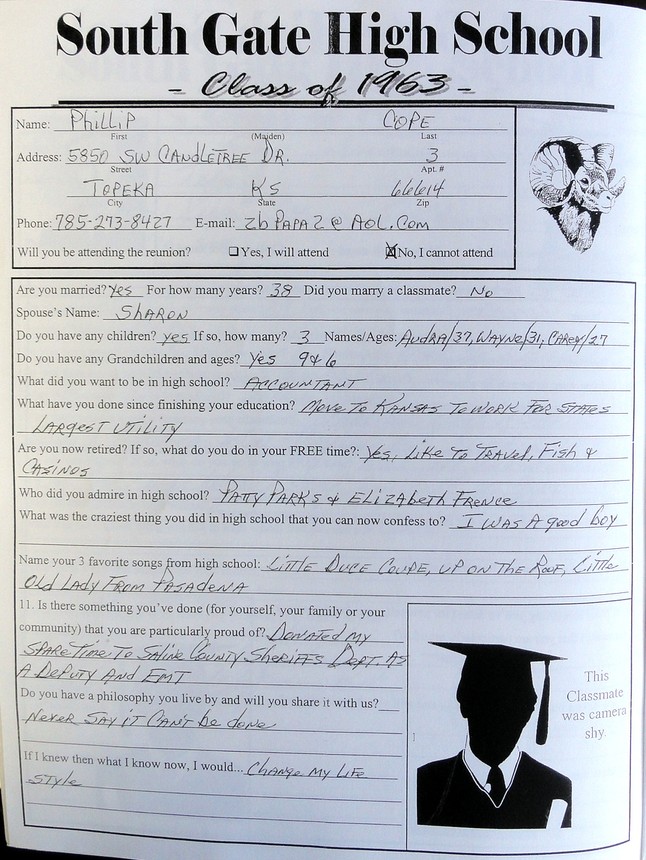 South Gate High School
- Class of 1963 -
Name: Phillip COPE
First (Maiden) Last
Address: 5850 SW CANDLETREE DR. 3
Street Apt. #
TOPEKA KS 66614
City State Zip
Phone: 785-273-8427 E-mail: ZbPAPA2@AOL.COM
Will you be attending the reunion? ☐Yes, I will attend ☒No, I cannot attend
Are you married? Yes For how many years? 38 Did you marry a classmate? No
Spouse's Name: SHARON
Do you have any children? yes If so, how many? 3 Names/Ages: AUDRA/37, WAYNE/31, CAREY/27
Do you have any Grandchildren and ages? Yes 9 & 6
What did you want to be in high school? ACCOUNTANT
What have you done since finishing your education? MOVE TO KANSAS TO WORK FOR STATES
LARGEST UTILITY
Are you now retired? If so, what do you do in your FREE time?: Yes, Like To TRAVEL, Fish &
CASINOS
Who did you admire in high school? PATTY PARKS & ELIZABETH FRENCE
What was the craziest thing you did in high school that you can now confess to? I WAS A good boy
Name your 3 favorite songs from high school: LITTLE DUCE COUPE, UP ON THE ROOF, Little
Old LADY FROM PASADENA
11. Is there something you've done (for yourself, your family or your
community) that you are particularly proud of? DONATED MY
SPARE TIME TO SALINE COUNTY SHERIFFS DEPT. AS
A DEPUTY AND EMT
Do you have a philosophy you live by and will you share it with us?
NEVER SAY iT CAN'T be done
If I knew then what I know now, I would... CHANGE MY LIFE
STYLE
This
Classmate
was camera
shy.